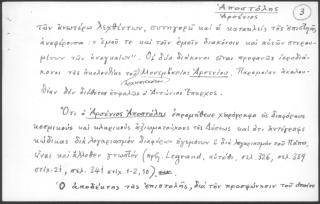 Ἀποστόλης
Ἀρσένιος
3
τῶν ἀνωτέρω λεχθέντων, συνηγορεῖ καὶ ἡ κατακλεὶς τῆς ἐπιστολῆς
ἀναφέρουσα : "ἐμοῦ τε καὶ τῶν ἐμῶν διακόνων καὶ αὐτῶν στερου-
μένων τῶν ἀναγκαίων". Οἱ δύο διάκονοι εἶναι προφανῶς ἱεροδιά-
κονοι τῆς ἀκολουθίας τοῦ Μονεμβασίας Ἀρσενίου. Παρομοίαν ἀκολου-
θίαν δὲν διέθετεν ἀσφαλῶς ὁ Ἀντώνιος Ἔπαρχος.
Ὅτι ὁ Ἀρσένιος Ἀποστόλης ἐπρομήθευε χειρόγραφα εἰς διαφόρους
κοσμικοὺς καὶ κληρικοὺς ἀξιωματούχους τῆς Δύσεως καὶ ὅτι ἀντέγραφε
κώδικας διὰ λογαριασμὸν διαφόρων ἡγεμόνων ἢ διὰ λογαριασμὸν τοῦ Πάπα,
εἶναι καὶ ἄλλοθεν γνωστὸν (πρβ. Legrand, αὐτόθι, σελ. 326, σελ. 339
στιχ. 21, σελ. 341 στιχ. 1-2, 10).
Ὁ ἀποδέκτης τῆς ἐπιστολῆς, διὰ τὴν προσφώνησιν τοῦ ὁποίου